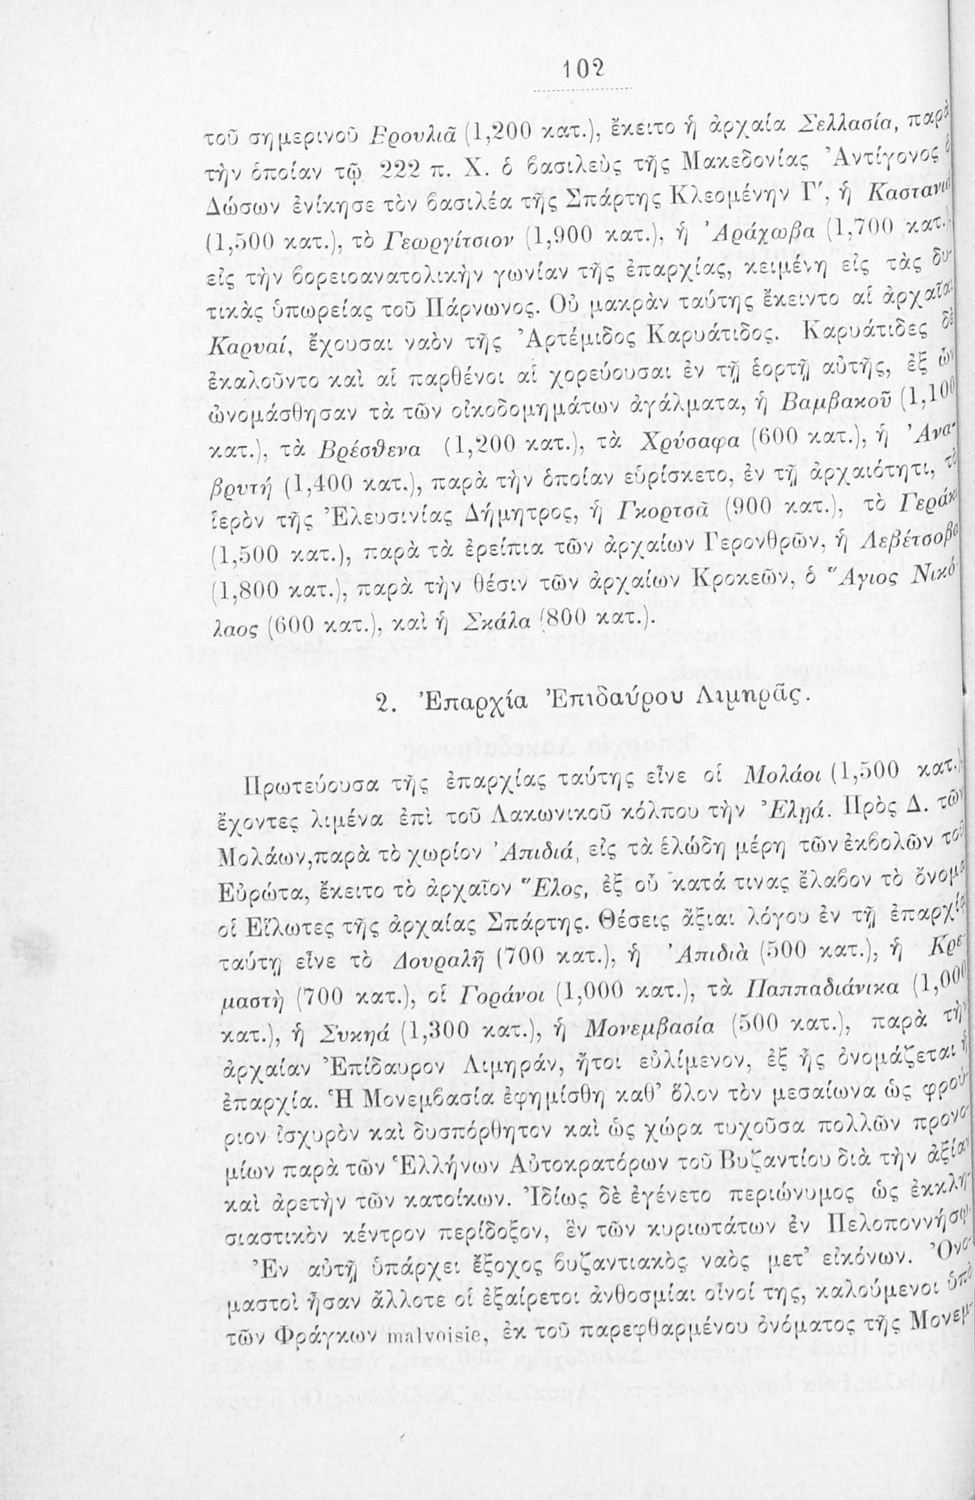 102
τοῦ σημερινοῦ Βρουλιᾶ (1,200 κατ.), ἔκειτο ἡ ἀρχαία Σελλασία, παρὰ
τὴν ὁποίαν τῷ 222 π. Χ. ὁ βασιλεὺς τῆς Μακεδονίας Ἀντίγονος ὁ
Δώσων ἐνίκησε τὸν βασιλέα τῆς Σπάρτης Κλεομένην Γʹ, ἡ Καστανιὰ
(1,500 κατ.), τὸ Γεωργίτσιον (1,900 κατ.), ἡ Ἀράχωβα (1,700 κατ.)
εἰς τὴν βορειοανατολικὴν γωνίαν τῆς ἐπαρχίας, κειμένη εἰς τὰς δυ-
τικὰς ὑπωρείας τοῦ Πάρνωνος. Οὐ μακρὰν ταύτης ἔκειντο αἱ ἀρχαῖαι
Καρυαί, ἔχουσαι ναὸν τῆς Ἀρτέμιδος Καρυάτιδος. Καρυάτιδες δὲ
ἐκαλοῦντο καὶ αἱ παρθένοι αἱ χορεύουσαι ἐν τῇ ἑορτῇ αὐτῆς, ἐξ ὧν
ὠνομάσθησαν τὰ τῶν οἰκοδομημάτων ἀγάλματα, ἡ Βαμβακοῦ (1,100
κατ.), τὰ Βρέσθενα (1,200 κατ.), τὰ Χρύσαφα (600 κατ.), ἡ Ἀνα-
βρυτή (1,400 κατ.), παρὰ τὴν ὁποίαν εὑρίσκετο, ἐν τῇ ἀρχαιότητι, τὸ
ἱερὸν τῆς Ἐλευσινίας Δήμητρος, ἡ Γκορτσᾶ (900 κατ.), τὸ Γεράκι
(1,500 κατ.), παρὰ τὰ ἐρείπια τῶν ἀρχαίων Γερονθρῶν, ἡ Λεβέτσοβα
(1,800 κατ.), παρὰ τὴν θέσιν τῶν ἀρχαίων Κροκεῶν, ὁ Ἅγιος Νικό-
λαος (600 κατ.), καὶ ἡ Σκάλα (800 κατ.).
2. Ἐπαρχία Ἐπιδαύρου Λιμηρᾶς.
Πρωτεύουσα τῆς ἐπαρχίας ταύτης εἶνε οἱ Μολάοι (1,500 κατ.)
ἔχοντες λιμένα ἐπὶ τοῦ Λακωνικοῦ κόλπου τὴν Ἐλῃά. Πρὸς Δ. τῶν
Μολάων, παρὰ τὸ χωρίον Ἀπιδιά, εἰς τὰ ἑλώδη μέρη τῶν ἐκβολῶν τοῦ
Εὐρώτα, ἔκειτο τὸ ἀρχαῖον Ἕλος, ἐξ οὗ κατά τινας ἔλαβον τὸ ὄνομα
οἱ Εἵλωτες τῆς ἀρχαίας Σπάρτης. Θέσεις ἄξιαι λόγου ἐν τῇ ἐπαρχίᾳ
ταύτῃ εἶνε τὸ Δουραλῆ (700 κατ.), ἡ Ἀπιδιὰ (500 κατ.), ἡ Κρε-
μαστὴ (700 κατ.), οἱ Γοράνοι (1,000 κατ.), τὰ Παππαδιάνικα (1,000
κατ.), ἡ Συκηά (1,300 κατ.), ἡ Μονεμβασία (500 κατ.), παρὰ τὴν
ἀρχαίαν Ἐπίδαυρον Λιμηράν, ἤτοι εὐλίμενον, ἐξ ἧς ὀνομάζεται ἡ
ἐπαρχία. Ἡ Μονεμβασία ἐφημίσθη καθ’ ὅλον τὸν μεσαίωνα ὡς φρού-
ριον ἰσχυρὸν καὶ δυσπόρθητον καὶ ὡς χώρα τυχοῦσα πολλῶν προνο-
μίων παρὰ τῶν Ἑλλήνων Αὐτοκρατόρων τοῦ Βυζαντίου διὰ τὴν ἀξίαν
καὶ ἀρετὴν τῶν κατοίκων. Ἰδίως δὲ ἐγένετο περιώνυμος ὡς ἐκκλη-
σιαστικὸν κέντρον περίδοξον, ἓν τῶν κυριωτάτων ἐν Πελοποννήσῳ.
Ἐν αὐτῇ ὑπάρχει ἔξοχος βυζαντιακὸς ναὸς μετ’ εἰκόνων. Ὀνο-
μαστοὶ ἦσαν ἄλλοτε οἱ ἐξαίρετοι ἀνθοσμίαι οἶνοί της, καλούμενοι ὑπὸ
τῶν Φράγκων malvoisie, ἐκ τοῦ παρεφθαρμένου ὀνόματος τῆς Μονεμ-